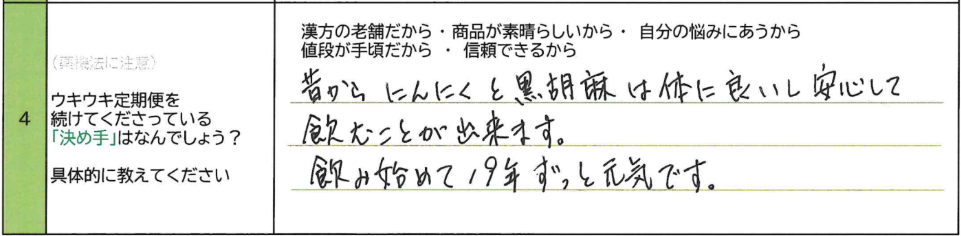 漢方の老舗だから・商品が素晴らしいから・ 自分の悩みにあうから
値段が手頃だから ・ 信頼できるから
（薬機法に注意）
4
ウキウキ定期便を
続けてくださっている
「決め手」はなんでしょう？
具体的に教えてください
昔から にんにくと黒胡麻は体に良いし安心して
飲むことが出来ます。
飲み始めて19年ずっと元気です。